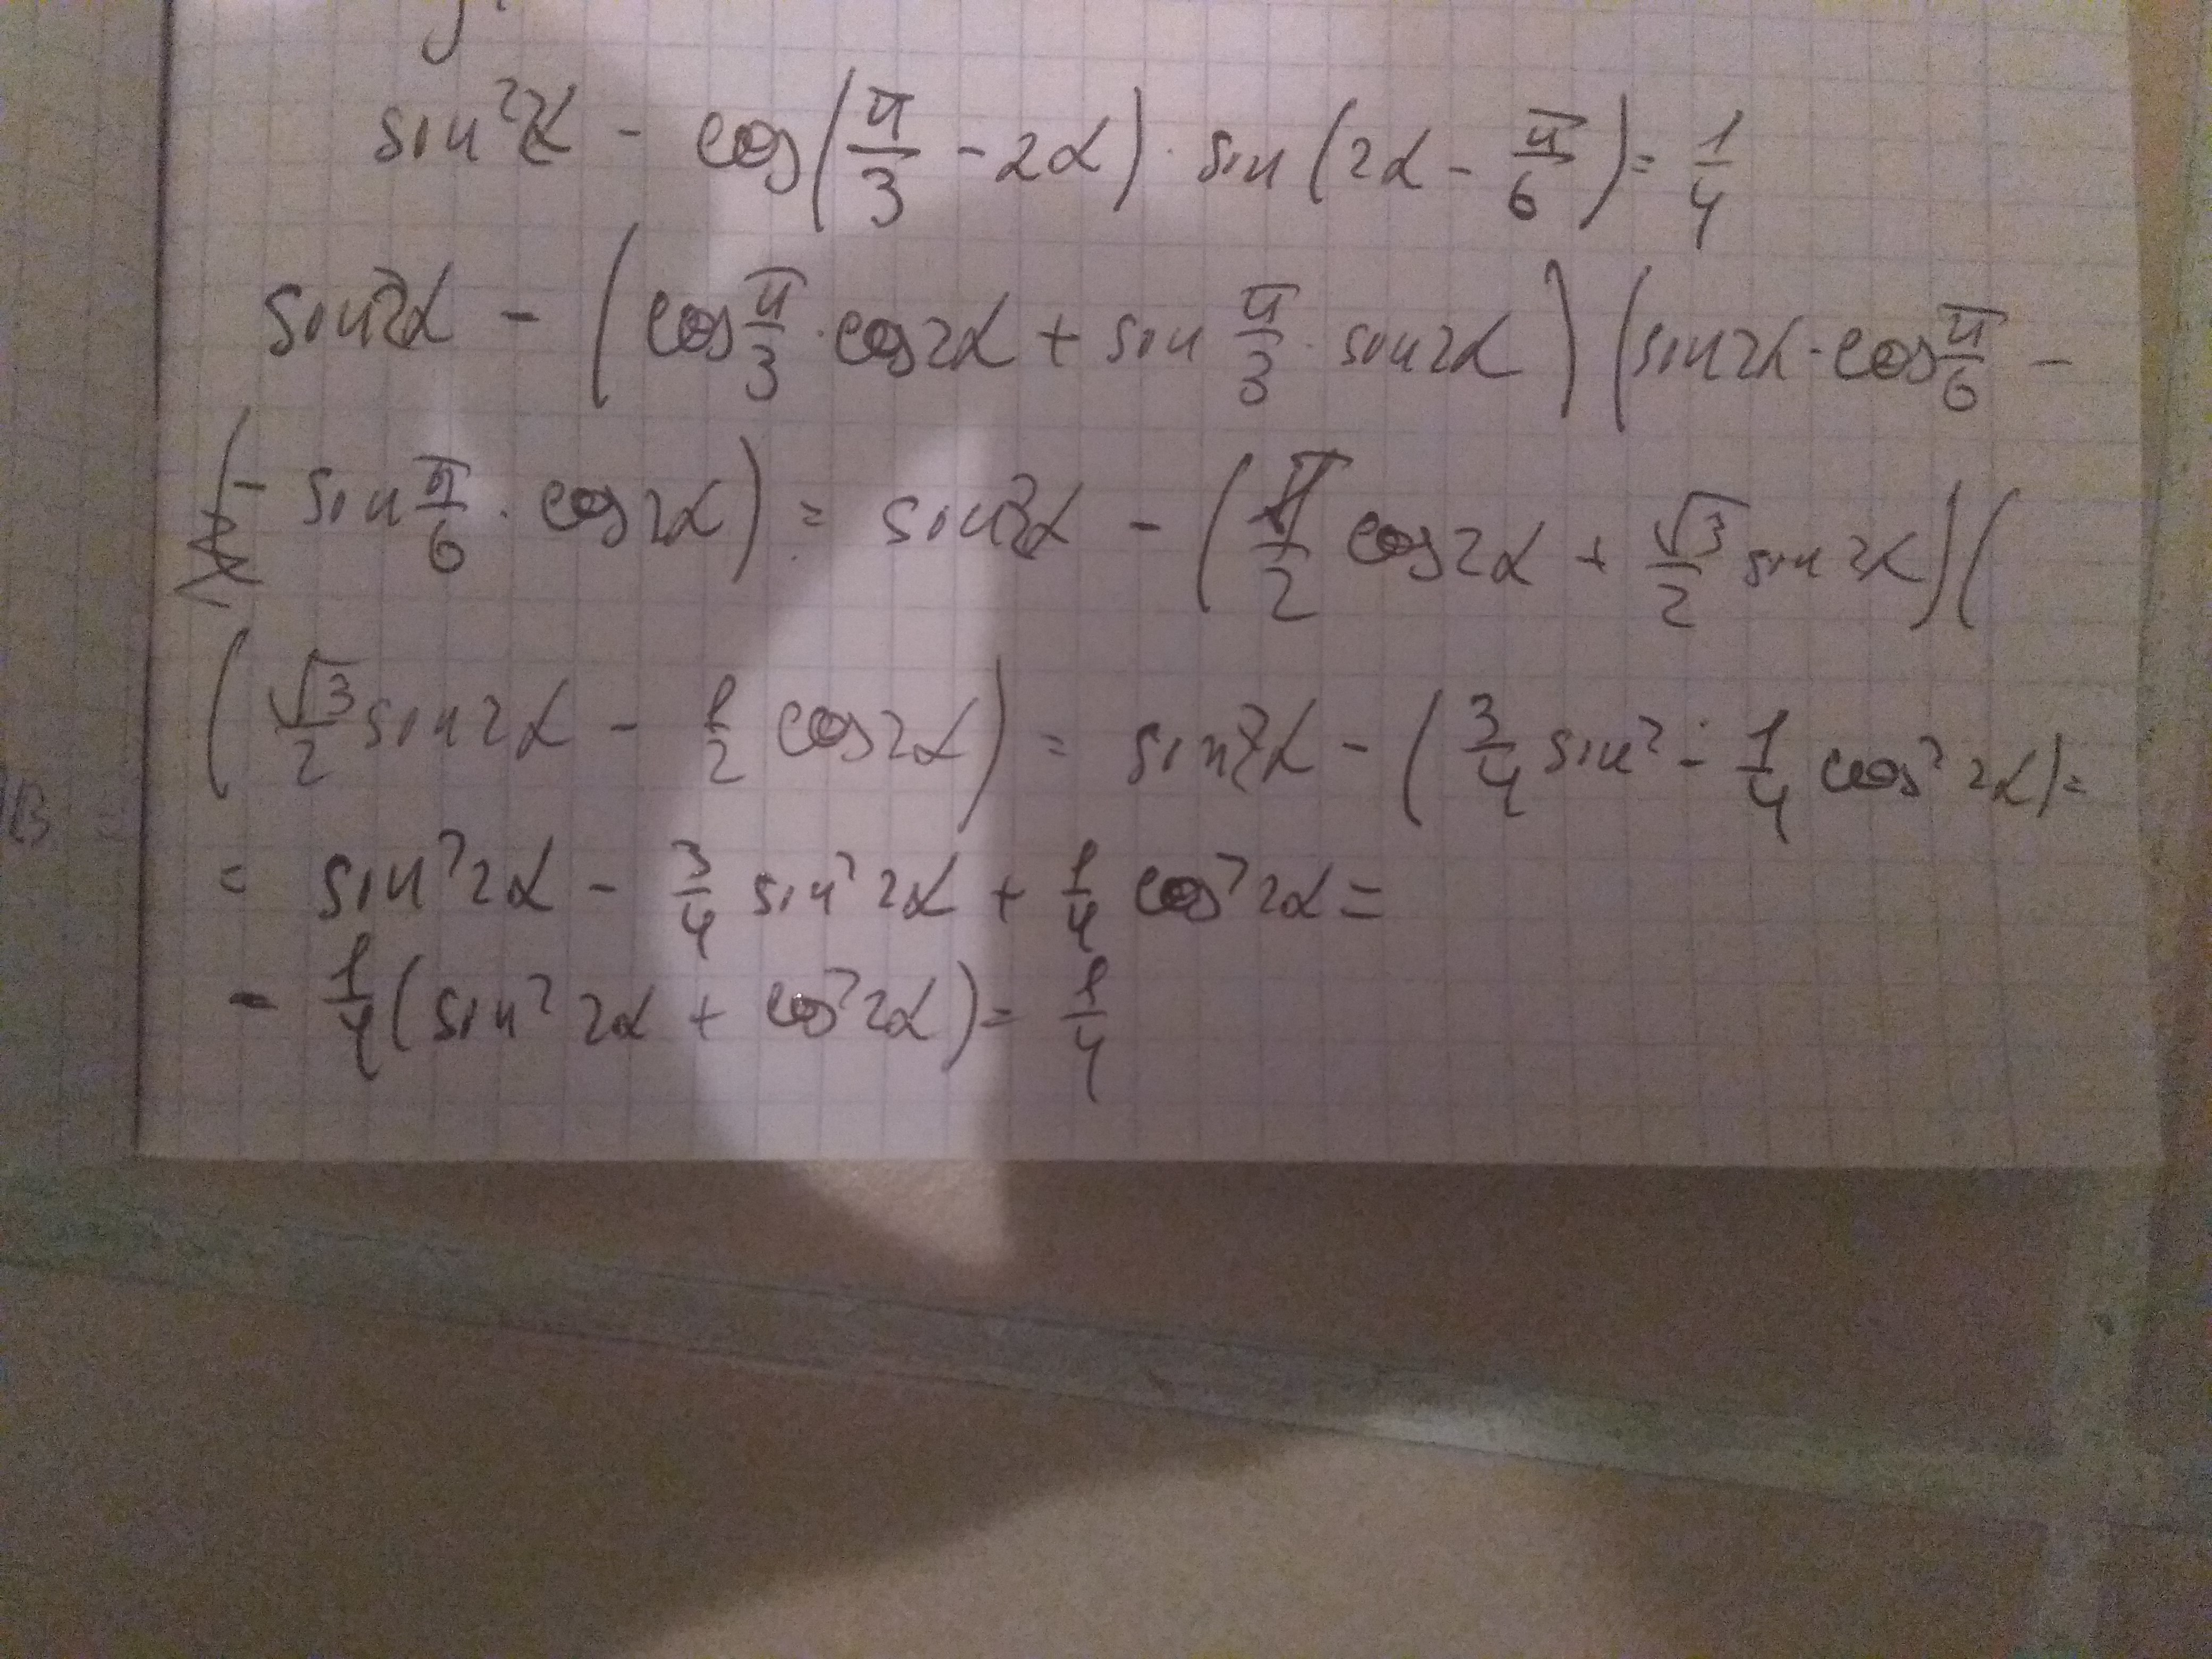 sin²2α - cos(π/3 - 2α) · sin(2α - π/6) = 1/4
sin²2α - (cos π/3 · cos2α + sin π/3 · sin2α)(sin2α · cos π/6 -
- sin π/6 · cos2α) = sin²2α - (1/2 cos2α + √3/2 sin2α)(
(√3/2 sin2α - 1/2 cos2α) = sin²2α - (3/4 sin² - 1/4 cos²2α) =
= sin²2α - 3/4 sin²2α + 1/4 cos²2α =
- 1/4(sin²2α + cos²2α) = 1/4